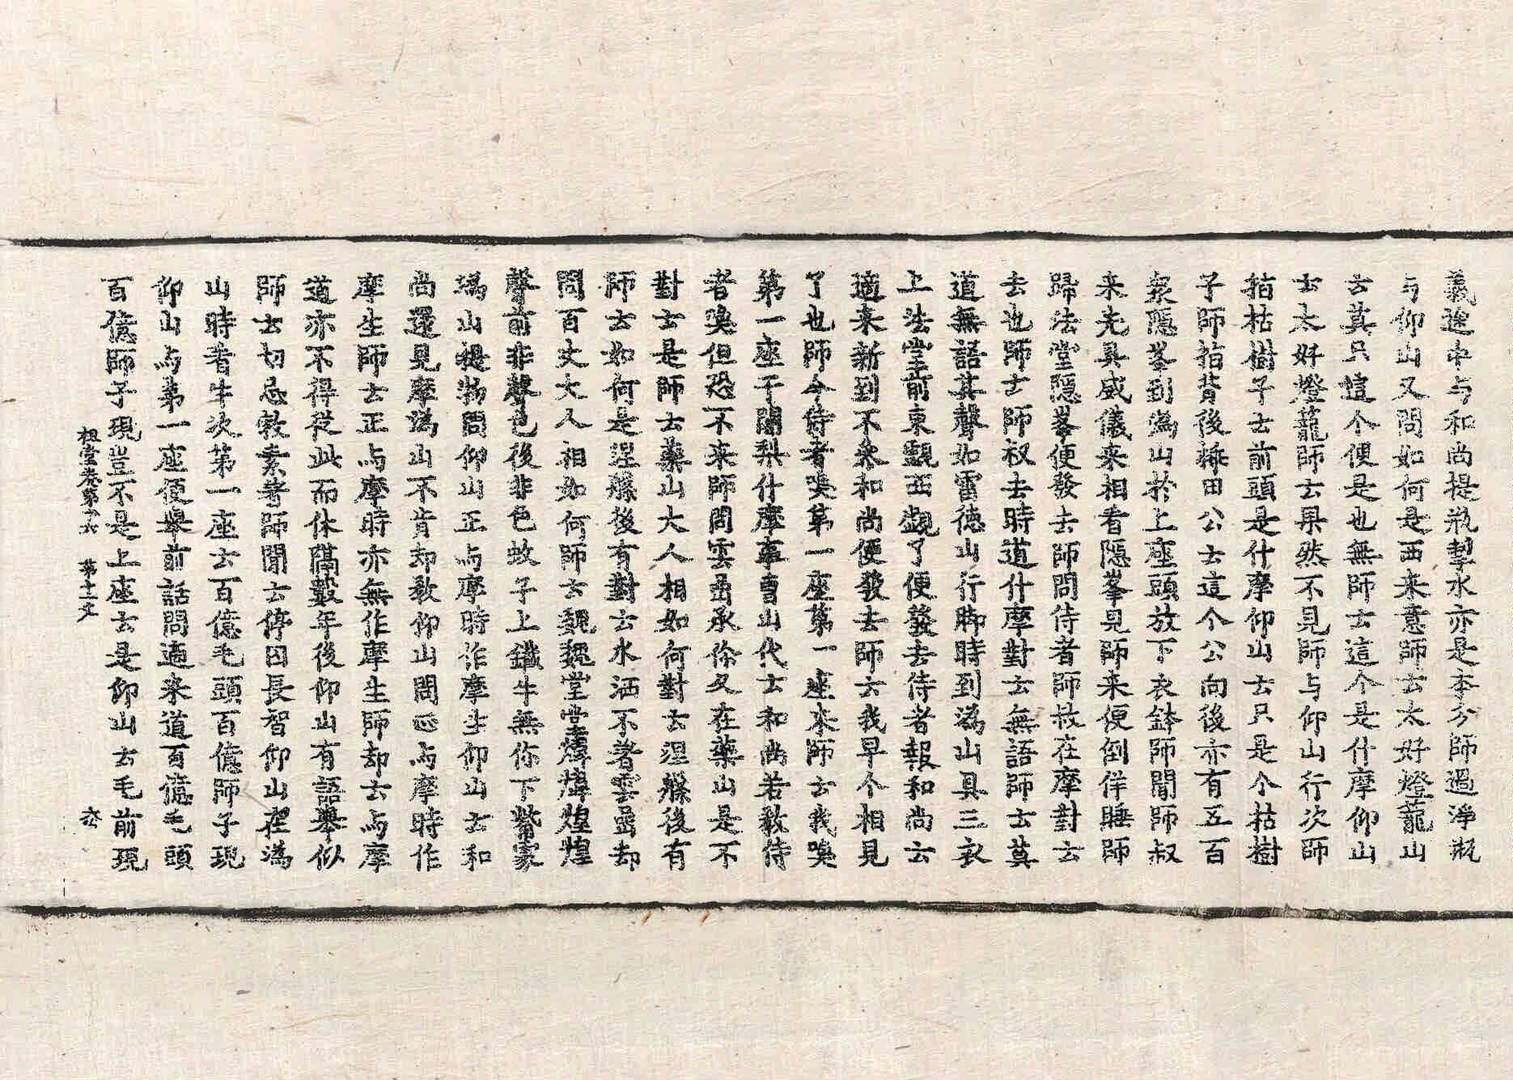 義途中与和尚提瓶挈水亦是本分師過淨瓶
与仰山又問如何是西来意師云太好燈籠山
云莫只這个便是也無師云這个是什摩仰山
云太好燈籠師云果然不見師与仰山行次師
指枯樹子云前頭是什摩仰山云只是个枯樹
子師指背後㽘田公云這个公向後亦有五百
衆隱峯到溈山於上座頭放下衣鉢師聞師叔
来先具威儀来相看隱峯見師来便倒佯睡師
歸法堂隱峯便發去師問侍者師叔在摩對云
去也師云師叔去時道什摩對云無語師云莫
道無語其聲如雷德山行脚時到溈山具三衣
上法堂前東覰西覰了便發去侍者報和尚云
適来新到不衆和尚便發去師云我早个相見
了也師令侍者喚第一座第一座来師云我喚
第一座干闍梨什摩事曹山代云和尚若教侍
者喚但恐不来師問雲嵒承你久在藥山是不
對云是師云藥山大人相如何對云涅槃後有
師云如何是涅槃後有對云水洒不著雲嵒却
問百丈大人相如何師云魏魏堂堂煒煒煌煌
聲前非聲色後非色蚊子上鐵牛無你下觜處
溈山提物問仰山正与摩時作摩生仰山云和
尚還見摩溈山不肯却教仰山問正与摩時作
摩生師云正与摩時亦無作摩生師却云与摩
道亦不得従此而休隔數年後仰山有語舉似
師云切忌敎素著師聞云停囚長智仰山在溈
山時看牛次第一座云百億毛頭百億師子現
仰山与第一座便舉前話問適来道百億毛頭
百億師子現豈不是上座云是仰山云毛前現
祖堂卷第十六 第十二丈